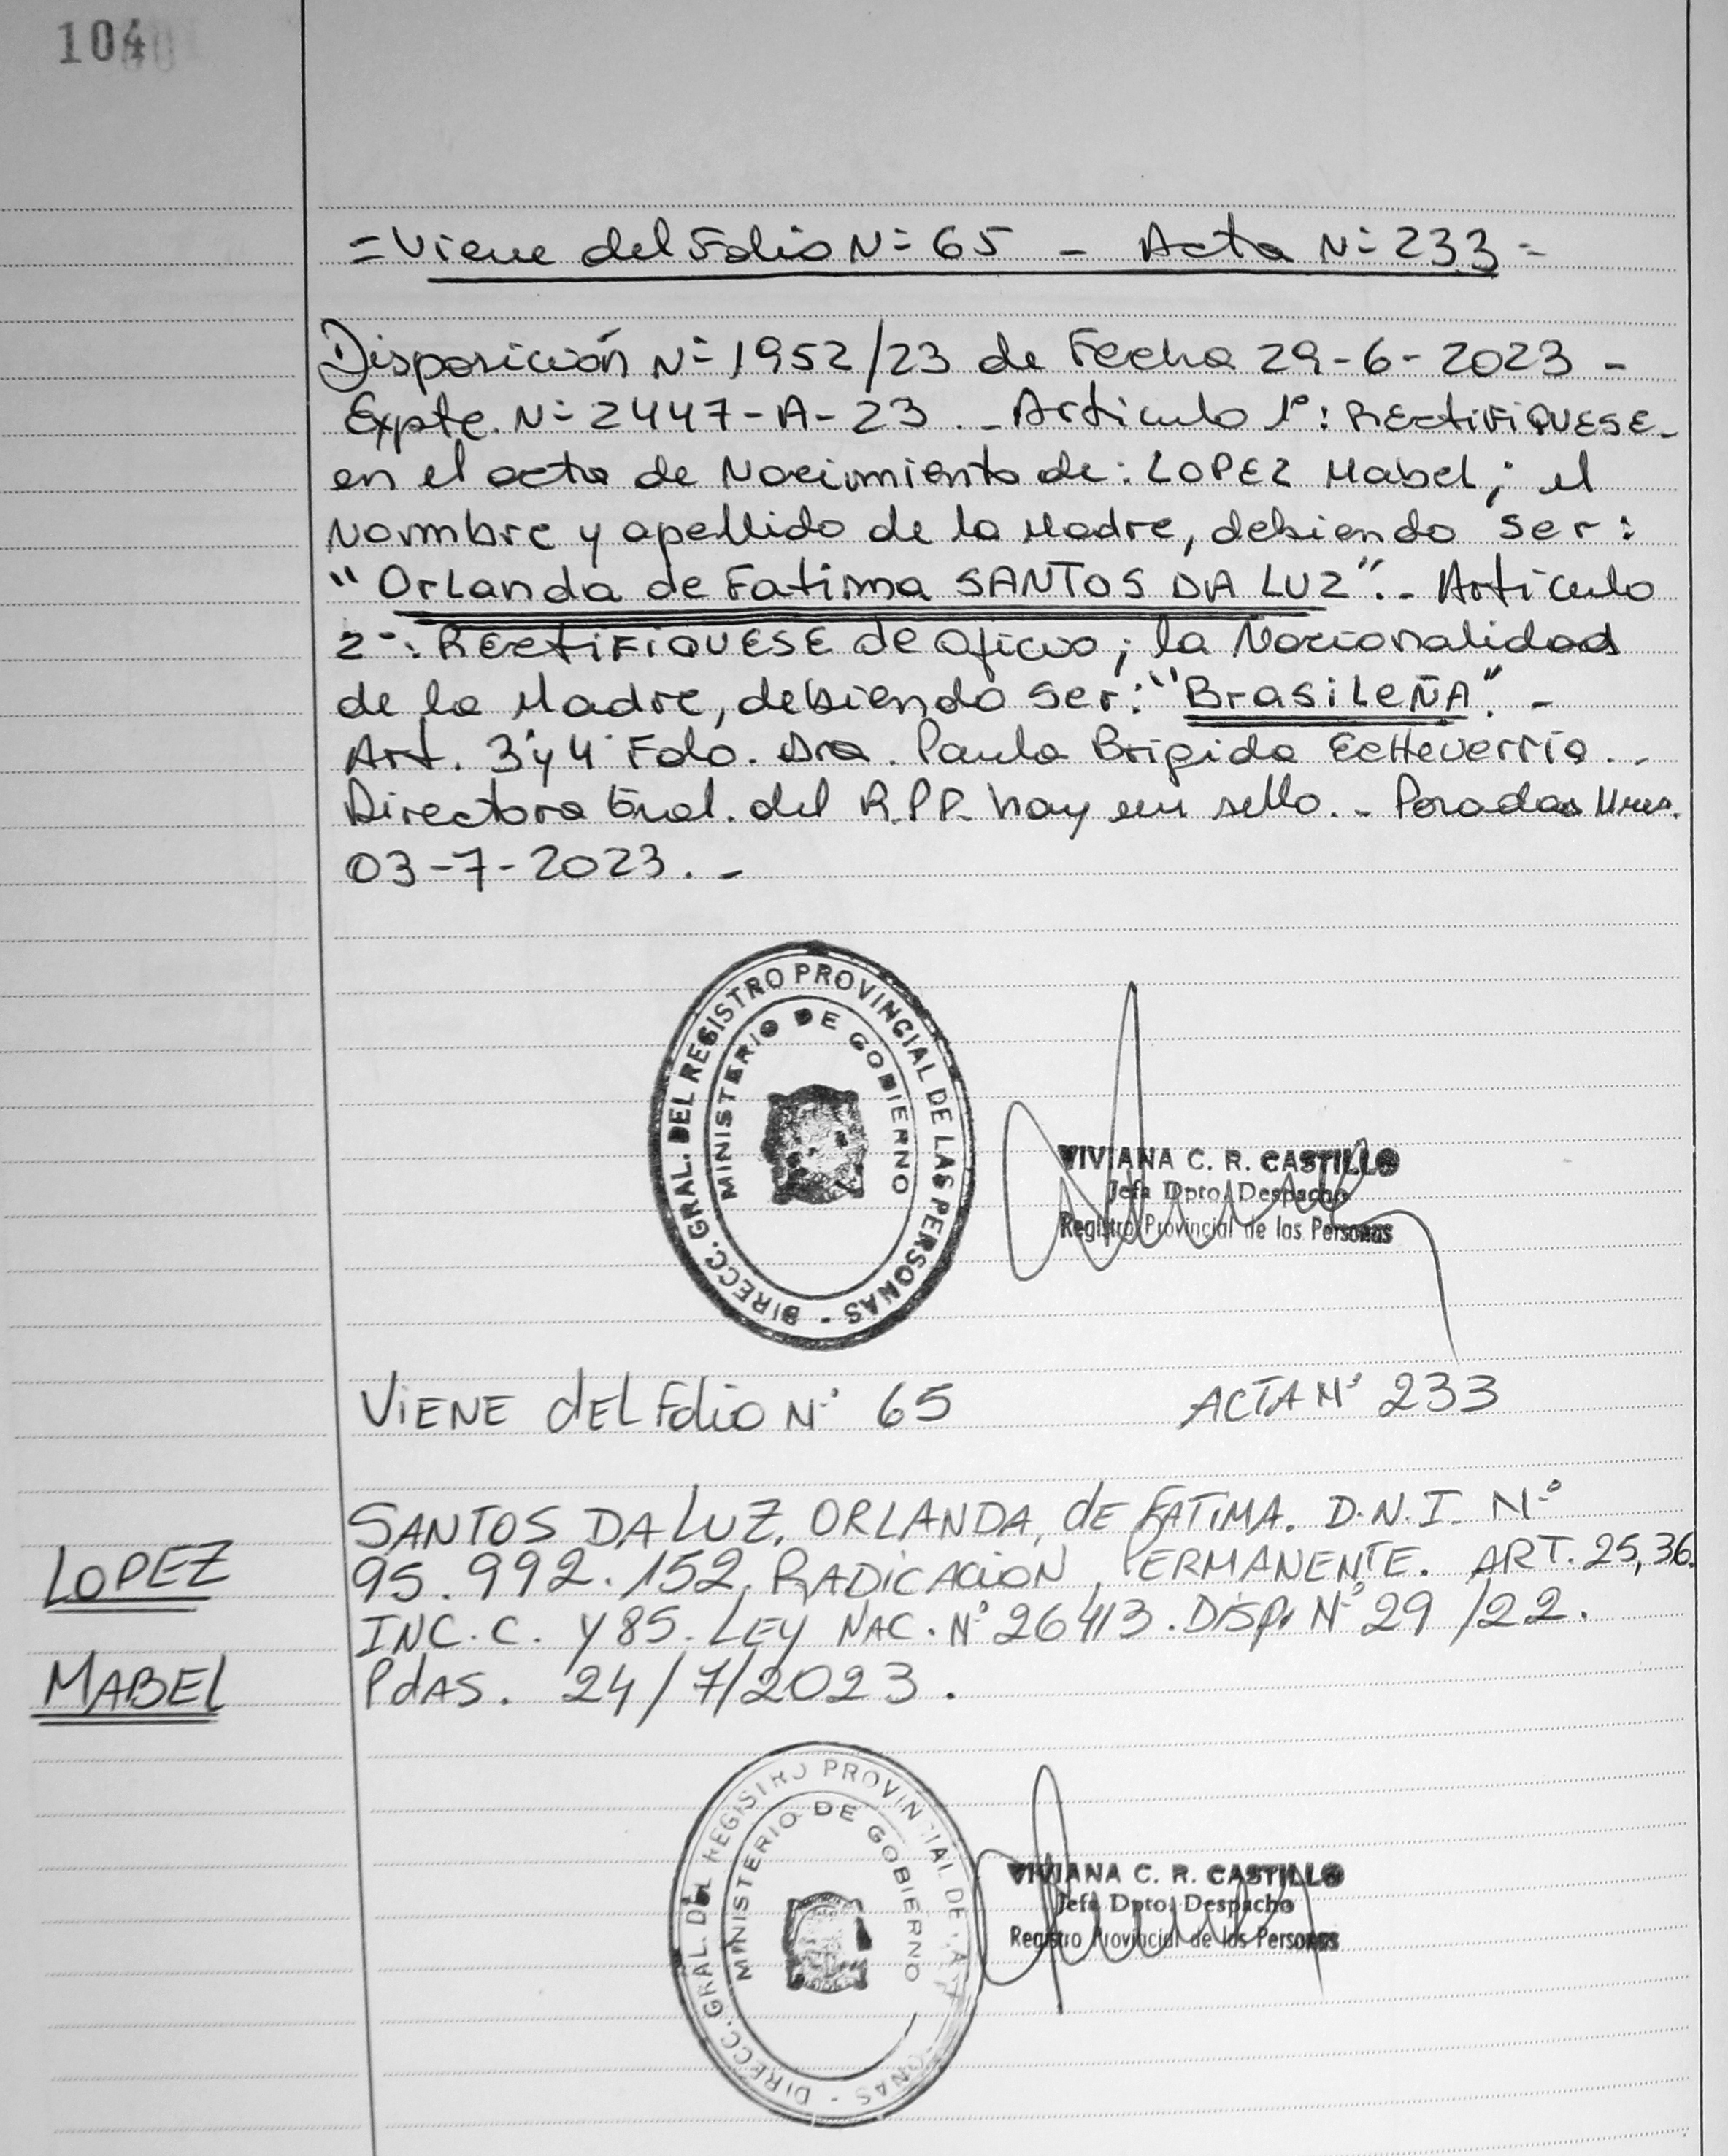 104
=Viene del Folio Nº 65 - Acta Nº 233=
Disposición Nº 1952/23 de Fecha 29-6-2023 -
Expte. Nº 2447-A-23.- Artículo 1º: RECtiFiQUESE-
en el acta de Nacimiento de: LOPEZ Mabel; el
Nombre y apellido de la Madre, debiendo ser:
"Orlanda de Fatima SANTOS DA LUZ".- Artículo
2º: RECtiFiQUESE de oficio; la Nacionalidad
de la Madre, debiendo ser: "BrasileÑA".-
Art. 3 y 4 Fdo. Dra. Paula Brigida EcHeverría.-
Directora Gral. del R.P.P. hay un sello.- Posadas Mnes.
03-7-2023.-
DIRECC. GRAL. DEL REGISTRO PROVINCIAL DE LAS PERSONAS -
MINISTERIO DE GOBIERNO
VIVIANA C. R. CASTILLO
Jefa Dpto. Despacho
Registro Provincial de las Personas
ViENE dEL Folio Nº 65 ACTA Nº 233
SANTOS DA LUZ, ORLANDA, dE FATiMA. D.N.I. Nº
LOPEZ
95.992.152, RADiCACiON, PERMANENTE. ART. 25,36.
INC. C. Y 85. LEY NAC. Nº 26413. DiSP. Nº 29/22.
MABEL
PdAS. 24/7/2023.
DIRECC. GRAL. DEL REGISTRO PROVINCIAL DE
MINISTERIO DE GOBIERNO
VIVIANA C. R. CASTILLO
Jefa Dpto. Despacho
Registro Provincial de las Personas